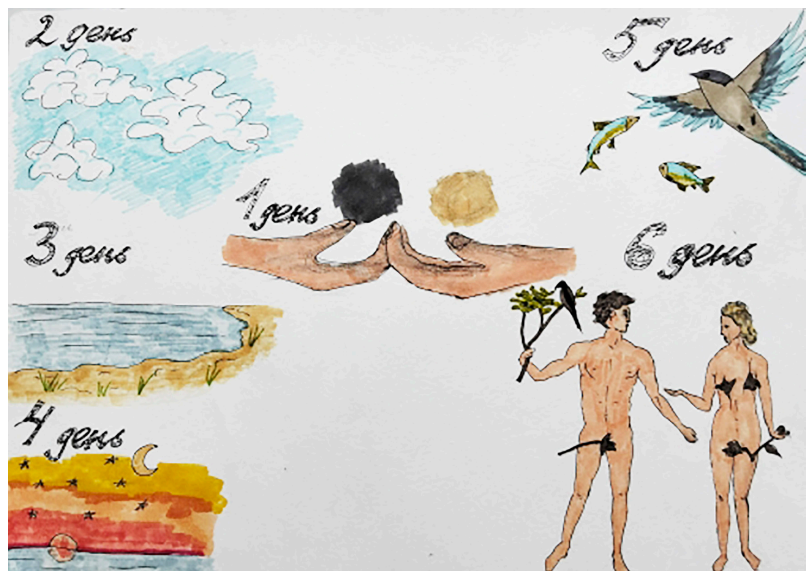 2 день
5 день
1 день
3 день
6 день
4 день